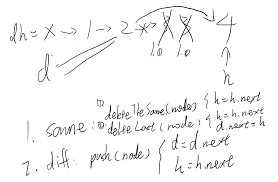 dh = x → 1 → 2 → x x 4
1.① 1.②
d
h
① deleteTheSame(nodes) { h = h.next
1. same: ② deleteLast(node) { h = h.next
d.next = h
2. diff: push(node) { d = d.next
h = h.next